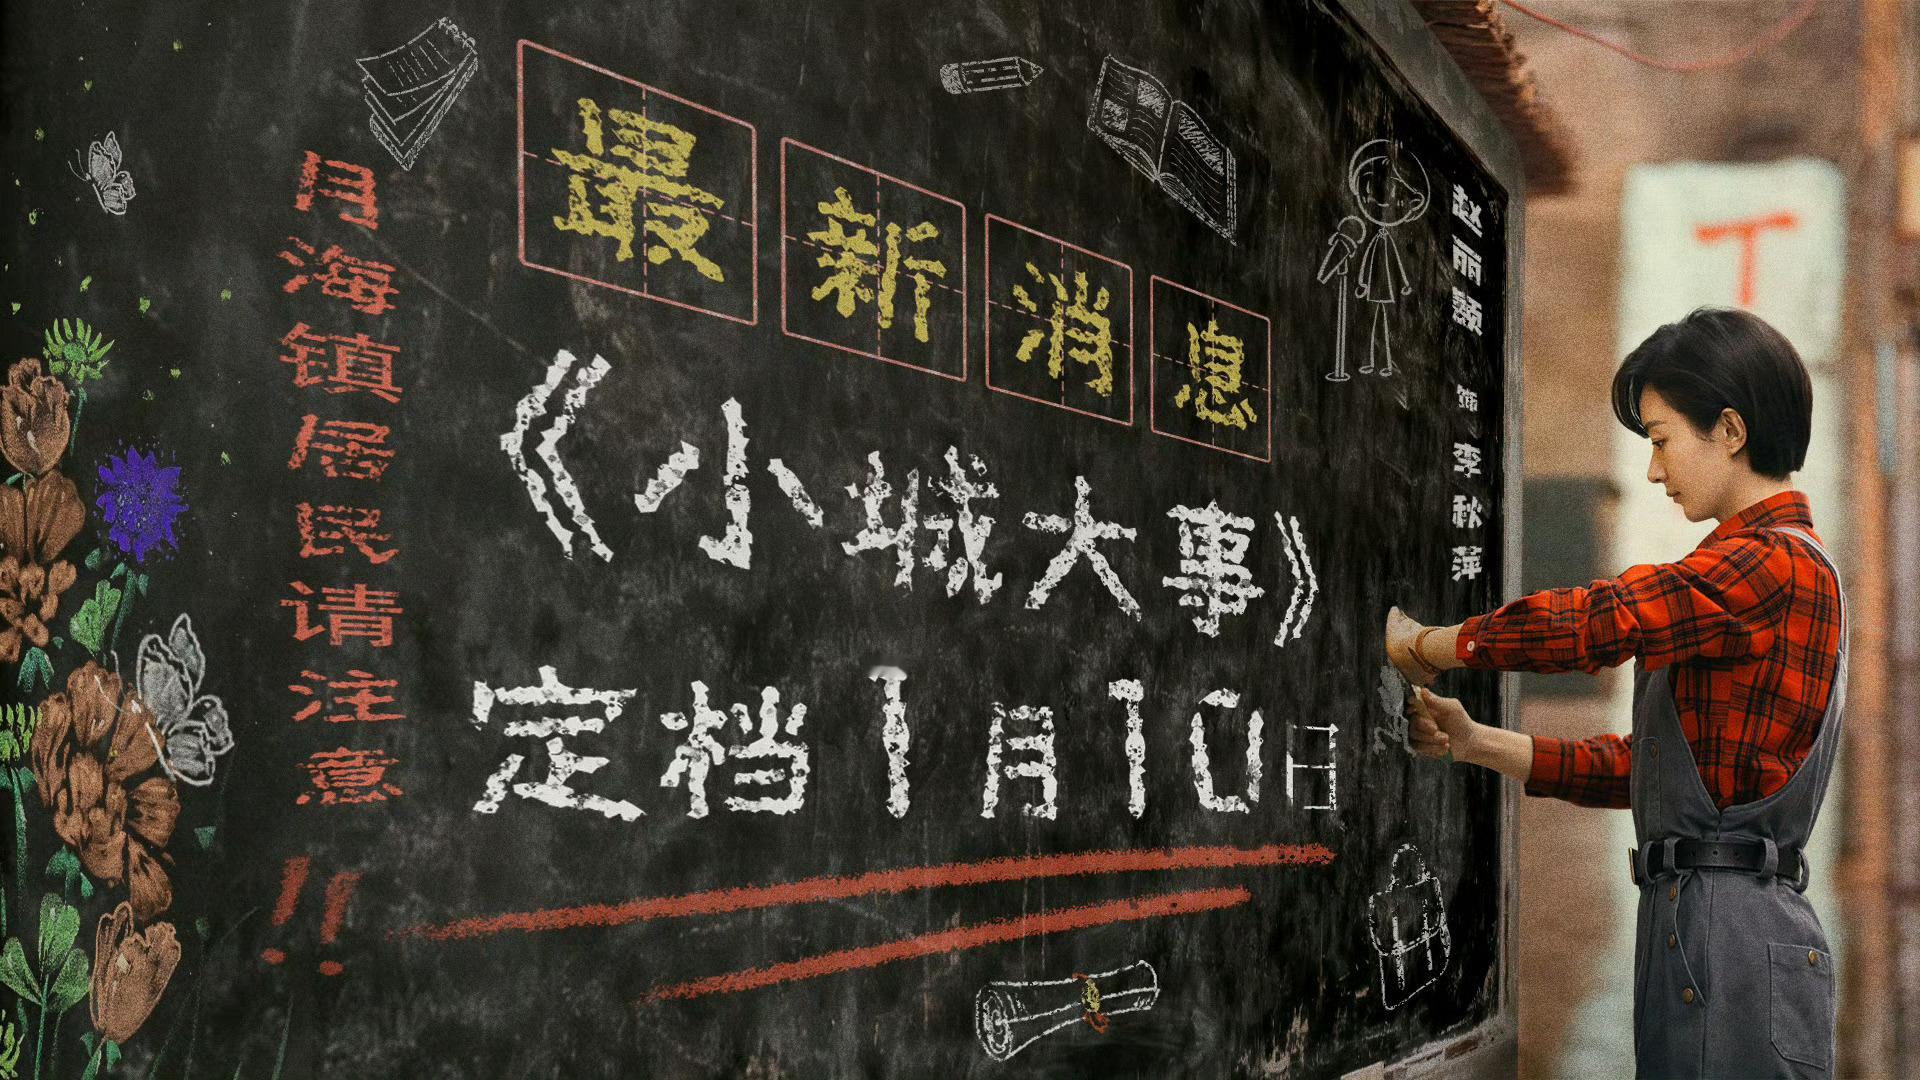 月海镇居民请注意!!
最新消息
《小城大事》
定档1月10日
赵丽颖 饰 李秋萍